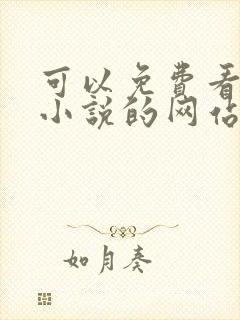 可以免费看
小说的网佔
如月奏